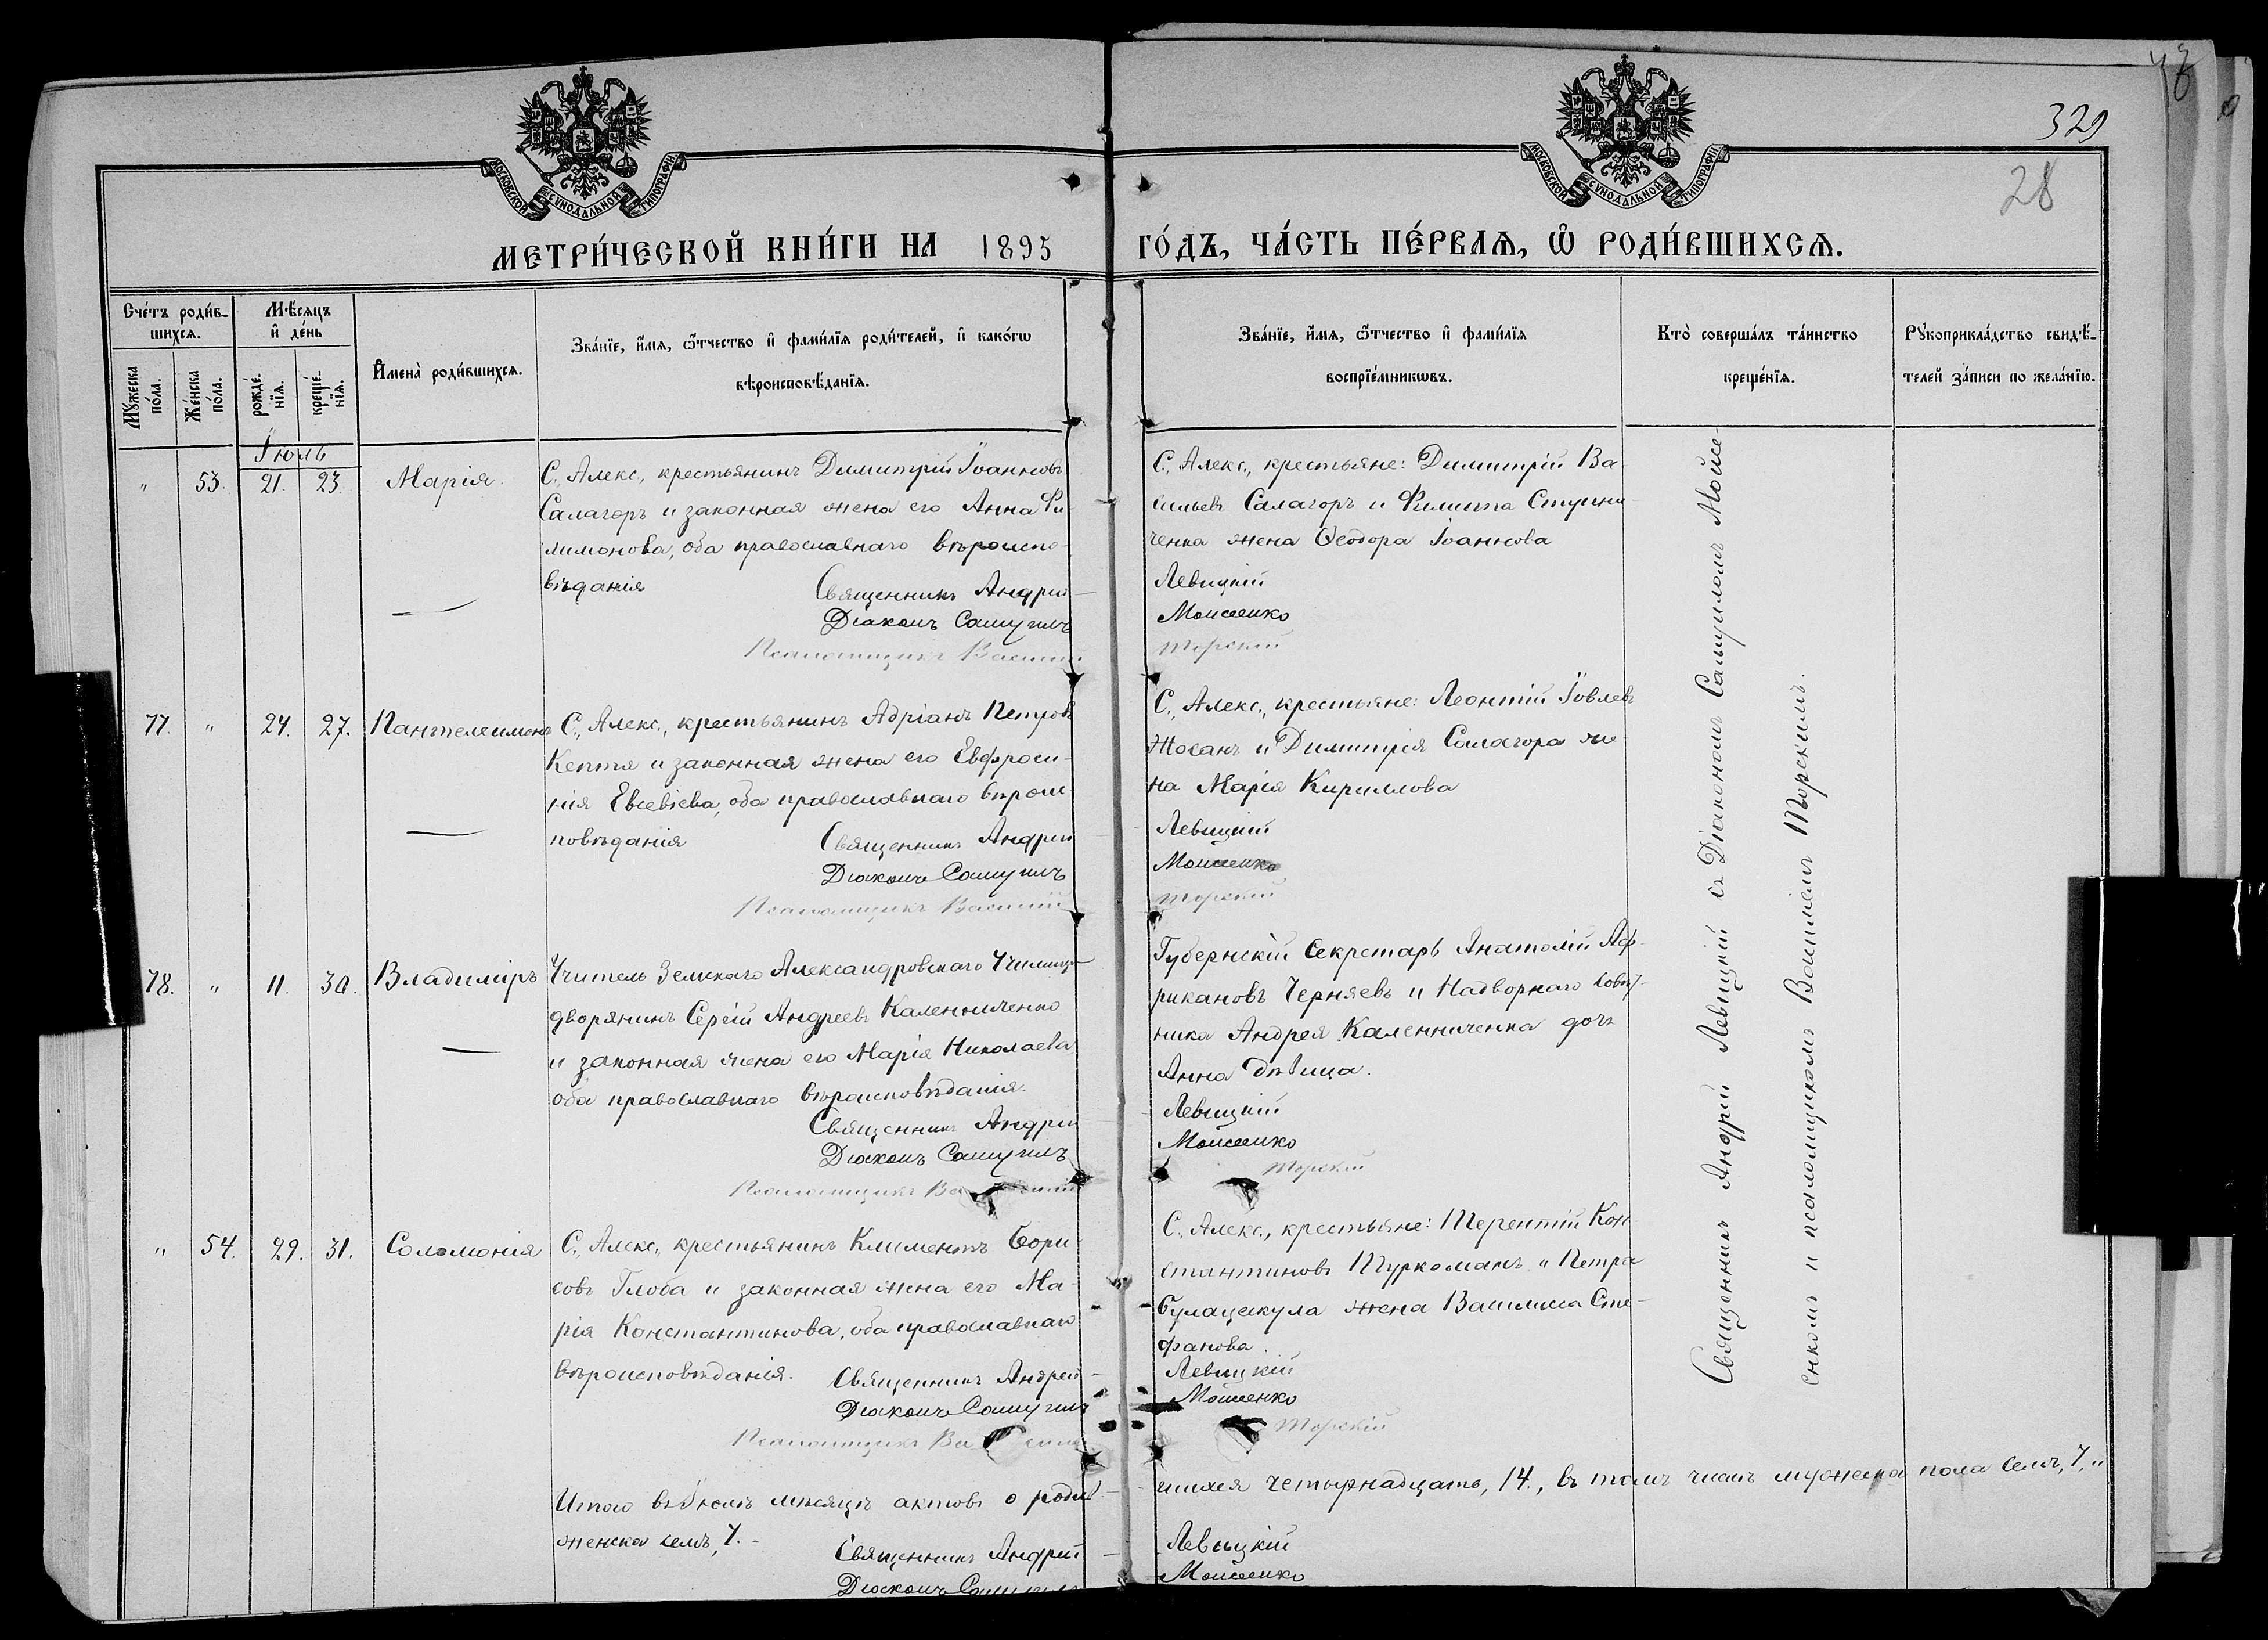 329
28
МОСКОВСКОЙ СѴНОДАЛЬНОЙ ТИПОГРАФІИ
МОСКОВСКОЙ СѴНОДАЛЬНОЙ ТИПОГРАФІИ
МЕТРИ́ЧЕСКОЙ КНИ́ГИ НА 1895 ГО́ДЪ, ЧА́СТЬ ПЕ́РВАѦ, Ѡ҆ РОДИ́ВШИХСѦ.
Сче́тъ роди́в-
шихсѧ.
Му́жеска
по́ла.
Же́нска
по́ла.
Мѣ́сѧцъ
и҆ де́нь
рожде́-
нїѧ.
креще́-
нїѧ.
И҆мена̀ роди́вшихсѧ.
Зва́нїе, и҆́мѧ, ѻ҆́тчество и҆ фами́лїѧ роди́телей, и҆ како́гѡ
вѣроисповѣ́данїѧ.
Зва́нїе, и҆́мѧ, ѻ҆́тчество и҆ фами́лїѧ
воспрїе́мникѡвъ.
Кто̀ соверша́лъ та́инство
креще́нїѧ.
Рꙋкоприкла́дство свидѣ́-
телей за́писи по жела́нїю.
Іюль
" 53. 21. 23. Марія.
С. Алекс., крестьянинъ Димитрій Іоанновъ
Салагоръ и законная жена его Анна Фи-
лимонова, оба православнаго вѣроиспо-
вѣданія
Священникъ Андрей
Діаконъ Самуилъ
Псаломщикъ Василій
С. Алекс., крестьяне: Димитрій Ва-
сильевъ Салагоръ и Филиппа
жена Ѳеодора Іоаннова
Левицкій
Моисеенко
Торскій
77. " 24. 27. Пантелеимонъ
С. Алекс., крестьянинъ Адріанъ Петровъ
Кептя и законная жена его Евфроси-
нія Евсевіева, оба православнаго вѣроис-
повѣданія
Священникъ Андрей
Діаконъ Самуилъ
Псаломщикъ Василій
С. Алекс., крестьяне: Леонтій Іовлевъ
Жосанъ и Димитрія Салагора же-
на Марія Кириллова
Левицкій
Моисеенко
Торскій
78. " 11. 30. Владиміръ
Учитель Земскаго Александровскаго Училища
дворянинъ Сергій Андреевъ Каленниченко
и законная жена его Марія Николаева
оба православнаго вѣроисповѣданія.
Священникъ Андрей
Діаконъ Самуилъ
Псаломщикъ Василій
Губернскій Секретарь Анатолій Аф-
рикановъ Черняевъ и Надворнаго Совѣт-
ника Андрея Каленниченка дочь
Анна дѣвица.
Левицкій
Моисеенко
Торскій
" 54. 29. 31. Соломонія
С. Алекс., крестьянинъ Климентъ Бори-
совъ Глоба и законная жена его Ма-
рія Константинова, оба православнаго
вѣроисповѣданія.
Священникъ Андрей
Діаконъ Самуилъ
Псаломщикъ Василій
С. Алекс., крестьяне: Терентій Кон-
стантиновъ Туркоманъ и Петра
жена Василисса Сте-
фанова.
Левицкій
Моисеенко
Торскій
Священникъ Андрей Левицкій съ Діакономъ Самуиломъ Моисе-
енкомъ и псаломщикомъ Василіемъ Торскимъ.
Итого въ Іюлѣ мѣсяцѣ актовъ о родив-
шихся четырнадцать, 14., въ томъ числѣ мужеска пола семь, 7, и
женска семь, 7.
Священникъ Андрей
Діаконъ Самуилъ
Левицкій
Моисеенко